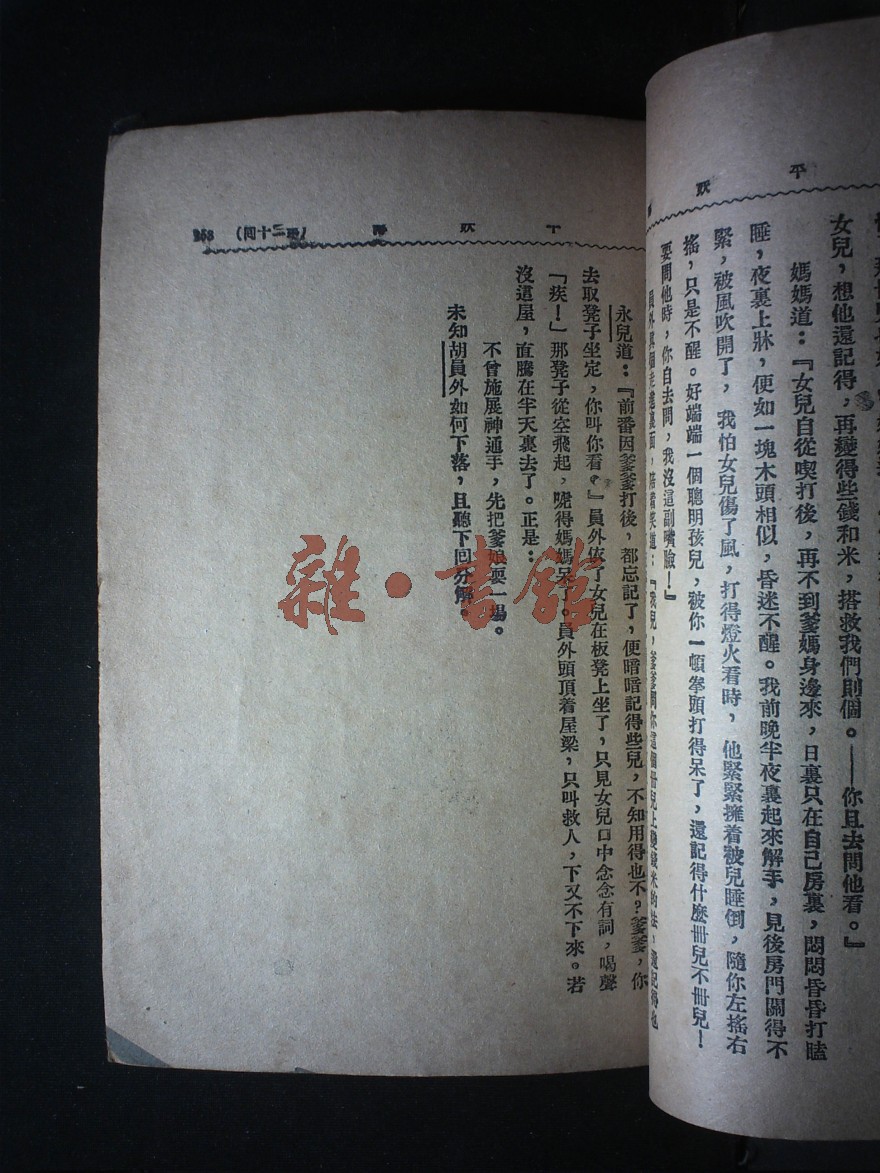 平妖
女兒，想他還記得，再變得些錢和米，搭救我們則個。——你且去問他看。』
媽媽道：『女兒自從喫打後，再不到爹媽身邊來，日裏只在自己房裏，悶悶昏昏打瞌
睡，夜裏上牀，便如一塊木頭相似，昏迷不醒。我前晚半夜裏起來解手，見後房門關得不
緊，被風吹開了，我怕女兒傷了風，打得燈火看時，他緊緊擁着被兒睡倒，隨你左搖右
搖，只是不醒。好端端一個聰明孩兒，被你一頓拳頭打得呆了，還記得什麼冊兒不冊兒！
要問他時，你自去問，我沒這副嘴臉！』
員外真個走進裏面，陪着笑道：『我兒，爹爹問你這個冊兒上變錢米的法，還記得也
平妖
十回）
258
永兒道：『前番因爹爹打後，都忘記了，便暗暗記得些兒，不知用得也不？爹爹，你
去取凳子坐定，你叫你看。』員外依了女兒在板凳上坐了，只見女兒口中念念有詞，喝聲
『疾！』那凳子從空飛起，唬得媽媽呆了。員外頭頂着屋梁，只叫救人，下又不下來。若
沒這屋，直騰在半天裏去了。正是：
不曾施展神通手，先把爹娘耍一場。
未知胡員外如何下落，且聽下回分解。
雜·書館